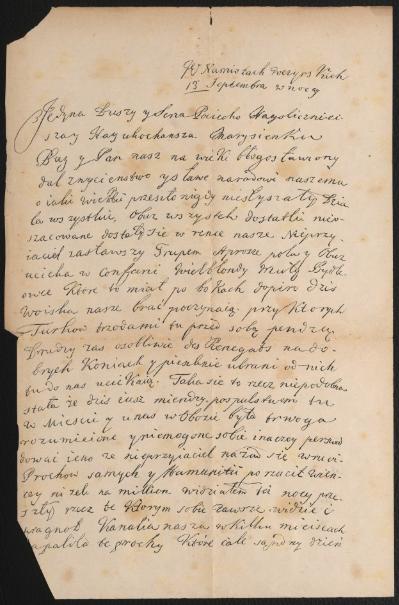 W Namiotach wezyrskich
13 Septembra w nocy
Jedyna Duszy y Serca Pociecho Naysliczniei
szay Nayukochansza Marysienku
Bug y Pan nasz na wieki błogosławiony
dał zwycienstwo y sławe narodowi naszemu
o iakii wieki przeszłe nigdy nie słyszały Dzia
ła wszystkie, Obuz wszystek dostatki nieo
szacowane dostały się w rence nasze Nieprzy
iaciel zasławszy Trupem Aprosze pola y Obuz
ucieka w Confusii Wielblondy Muły Bydle
owce Ktore to miał po bokach dopiro dzis
woiska nasze brac poczynaią przy Ktorych
Turkow trzodami tu przed sobą pendzą
Drudzy zas osobliwie des Renegats na do
brych Koniach y pieknie ubrani od nich
tu do nas uciekaią. Taka sie to rzecz niepodobna
stała że dzis iusz miendzy pospulstwem tu
w Miescie y u nas w Obozie była trwoga
rozumieione y niemogone sobie inaczy perswa
dowac ieno ze nieprzyiaciel nazad się wruci
Prochow samych y Amunitii porzucił wien
cey niżeli na million widziałem tei nocy prze
szłey rzecz te Ktorym sobie zawsze widzie c
pragnoł Kanalia nasza w Kilku mieiscach
zapaliła te prochy Które całe sądny dzień